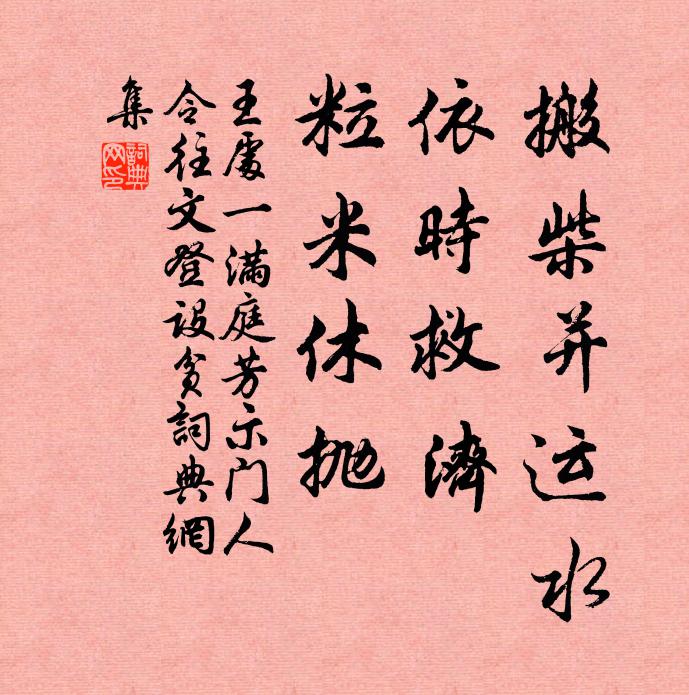 搬柴并运水
依時救濟
粒米休抛
王處一满庭芳示门人
令往文登设贫詞典網
集
詞典網印